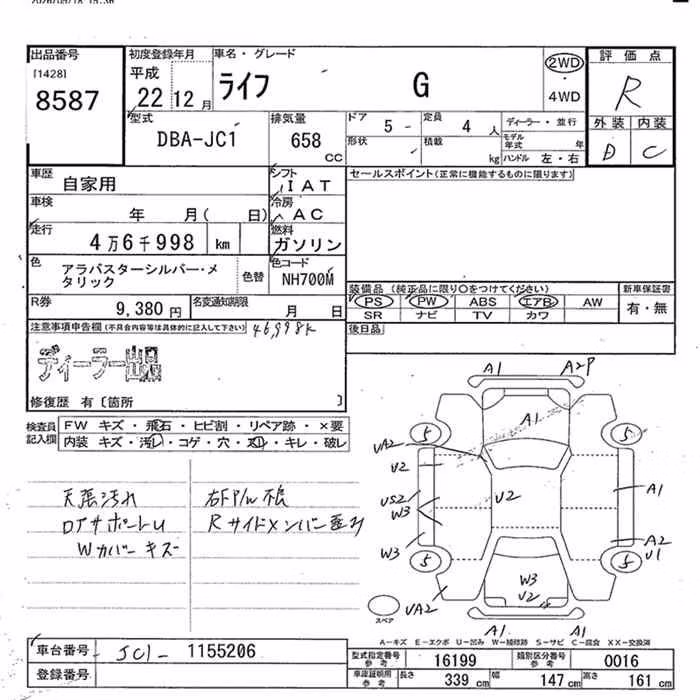 出品番号
[1428]
8587
初度登録年月
平成
22 12月
車名・グレード
ライフ G
2WD
・
4WD
評価点
R
外装 内装
D C
型式
DBA-JC1
排気量
658
CC
ドア
5
定員
4 人
形状
積載
kg
ディーラー・並行
モデル年式 年
ハンドル 左・右
車歴
自家用
シフト
IAT
セールスポイント(正常に機能するものに限ります)
車検
年 月( 日)
冷房
AC
走行
4万6千998 km
燃料
ガソリン
色
アラバスターシルバー・メ
タリック
色替
色コード
NH700M
装備品 (純正品に限り○をつけてください)
PS PW ABS エアB AW
SR ナビ TV カワ
新車保証書
有・無
R券
9,380円
名変通知期限
月 日
後日品
注意事項申告欄(不具合内容等は具体的に記入して下さい)
46,998K
ディーラー出品
修復歴 有〔箇所 〕
検査員
記入欄
FW キズ・飛石・ヒビ割・リペア跡・×要
内装 キズ・汚レ・コゲ・穴・スレ・キレ・破レ
天張汚れ
Wカバーキズ
右FP/W不良
A1 A2P
A1
5 5
UA2
U2
US2
W3
U2
A1
W3
A2
U1
5 5
W3
U2
UA2
スペア
A1 A1
A-キズ E-エクボ U-凹み W-補修跡 S-サビ C-腐食 XX-交換済
車台番号
JC1- 1155206
登録番号
型式指定番号
参考
16199
類別区分番号
参考
0016
車庫証明用
参考
長さ 339 cm 幅 147 cm 高さ 161 cm